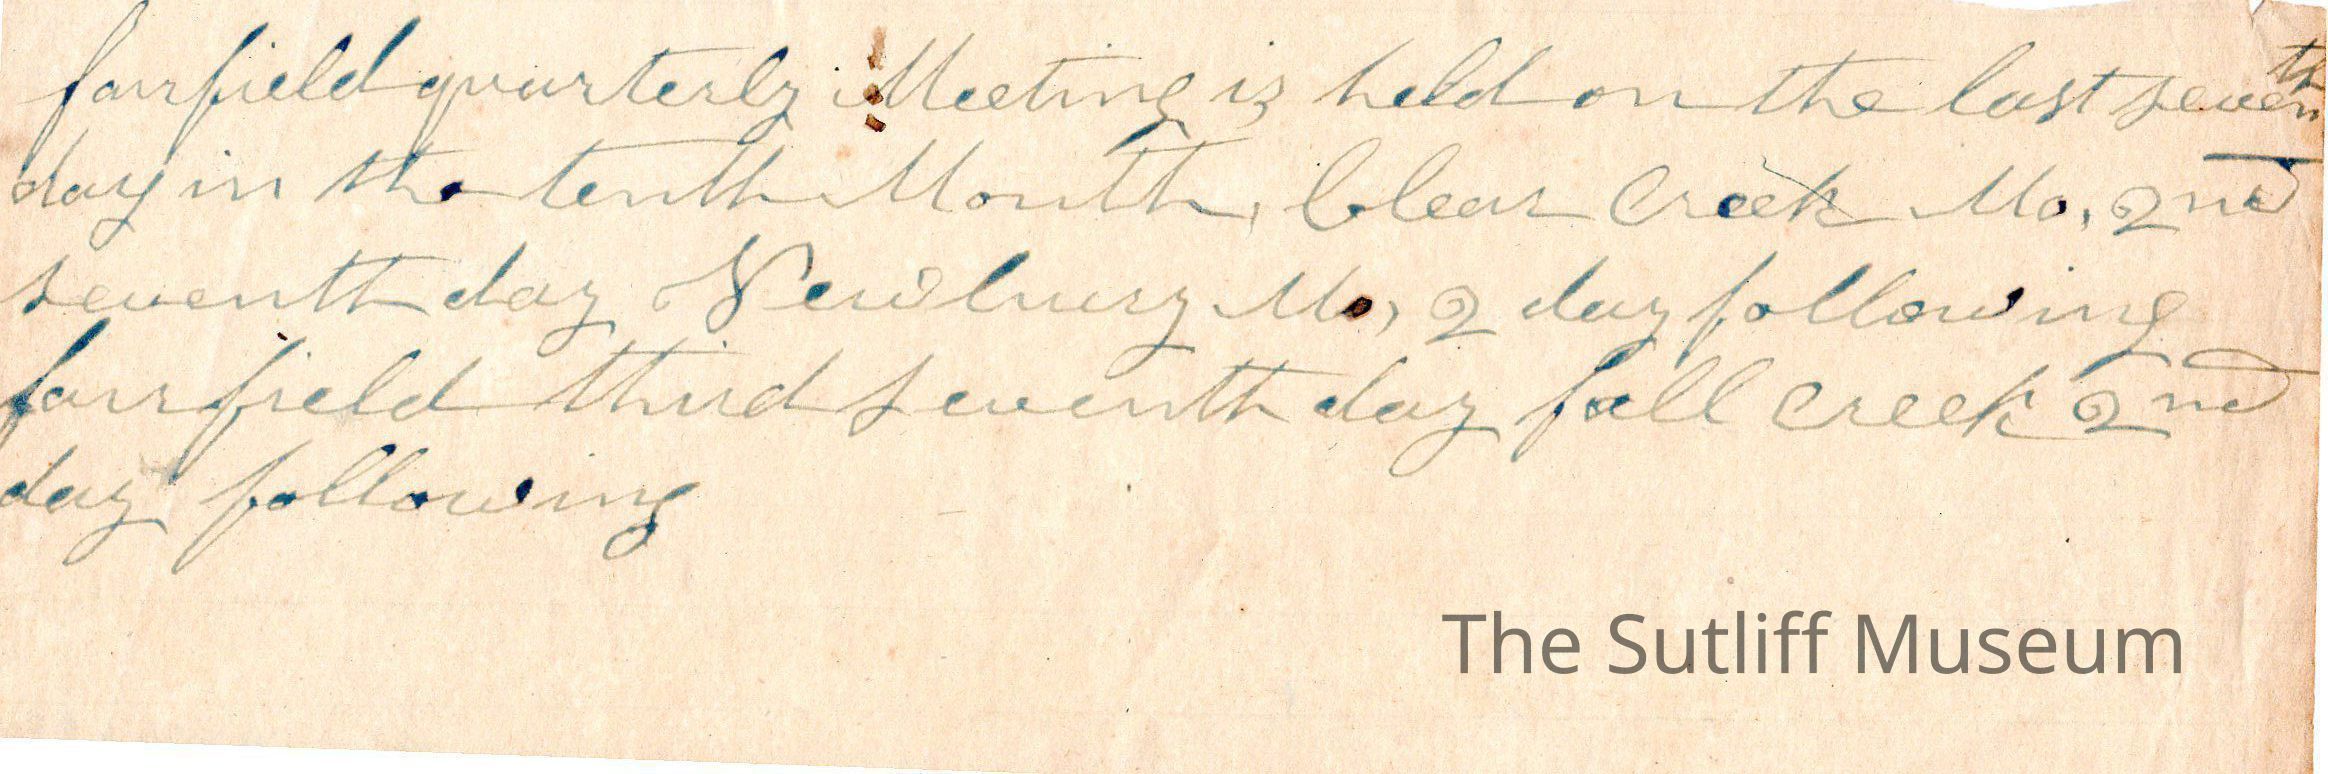 fairfield quarterly Meeting is held on the last seventh
day in the tenth Month, Clear Creek Mo, 2nd
seventh day Newbury Mo, 2 day following
fairfield third seventh day fall creek 2nd
day following
The Sutliff Museum